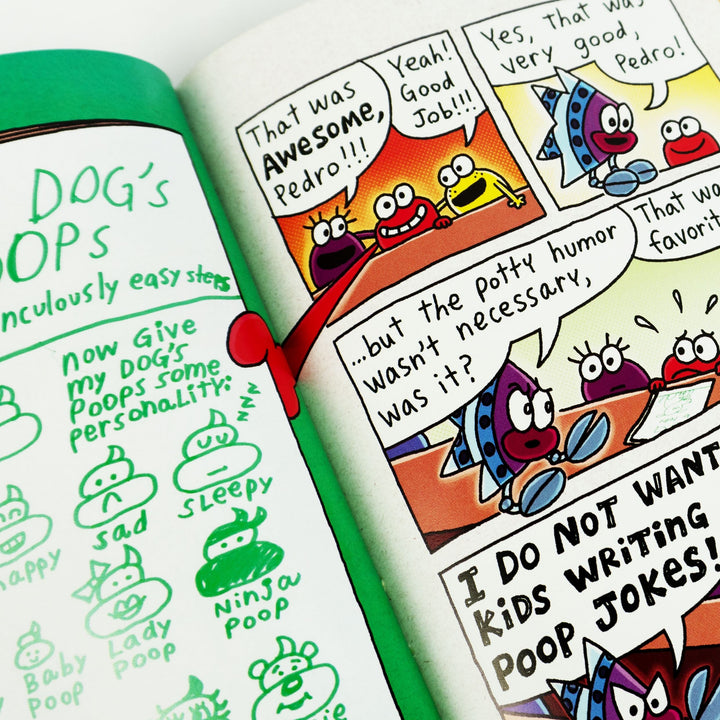 DOG's
OOPs
nculously easy steps
now Give
my DOG's
Poops some
personaLity:
zzz
sLeepy
sad
happy
Ninja
poop
Lady
poop
Baby
poop
That was
AWESOME,
Pedro!!!
Yeah!
Good
Job!!!
Yes, that was
very good,
Pedro!
...but the potty humor
wasn't necessary,
was it?
That wa
favorit
I DO NOT WANT
KiDS WRiTiNG
POOP JOKES!